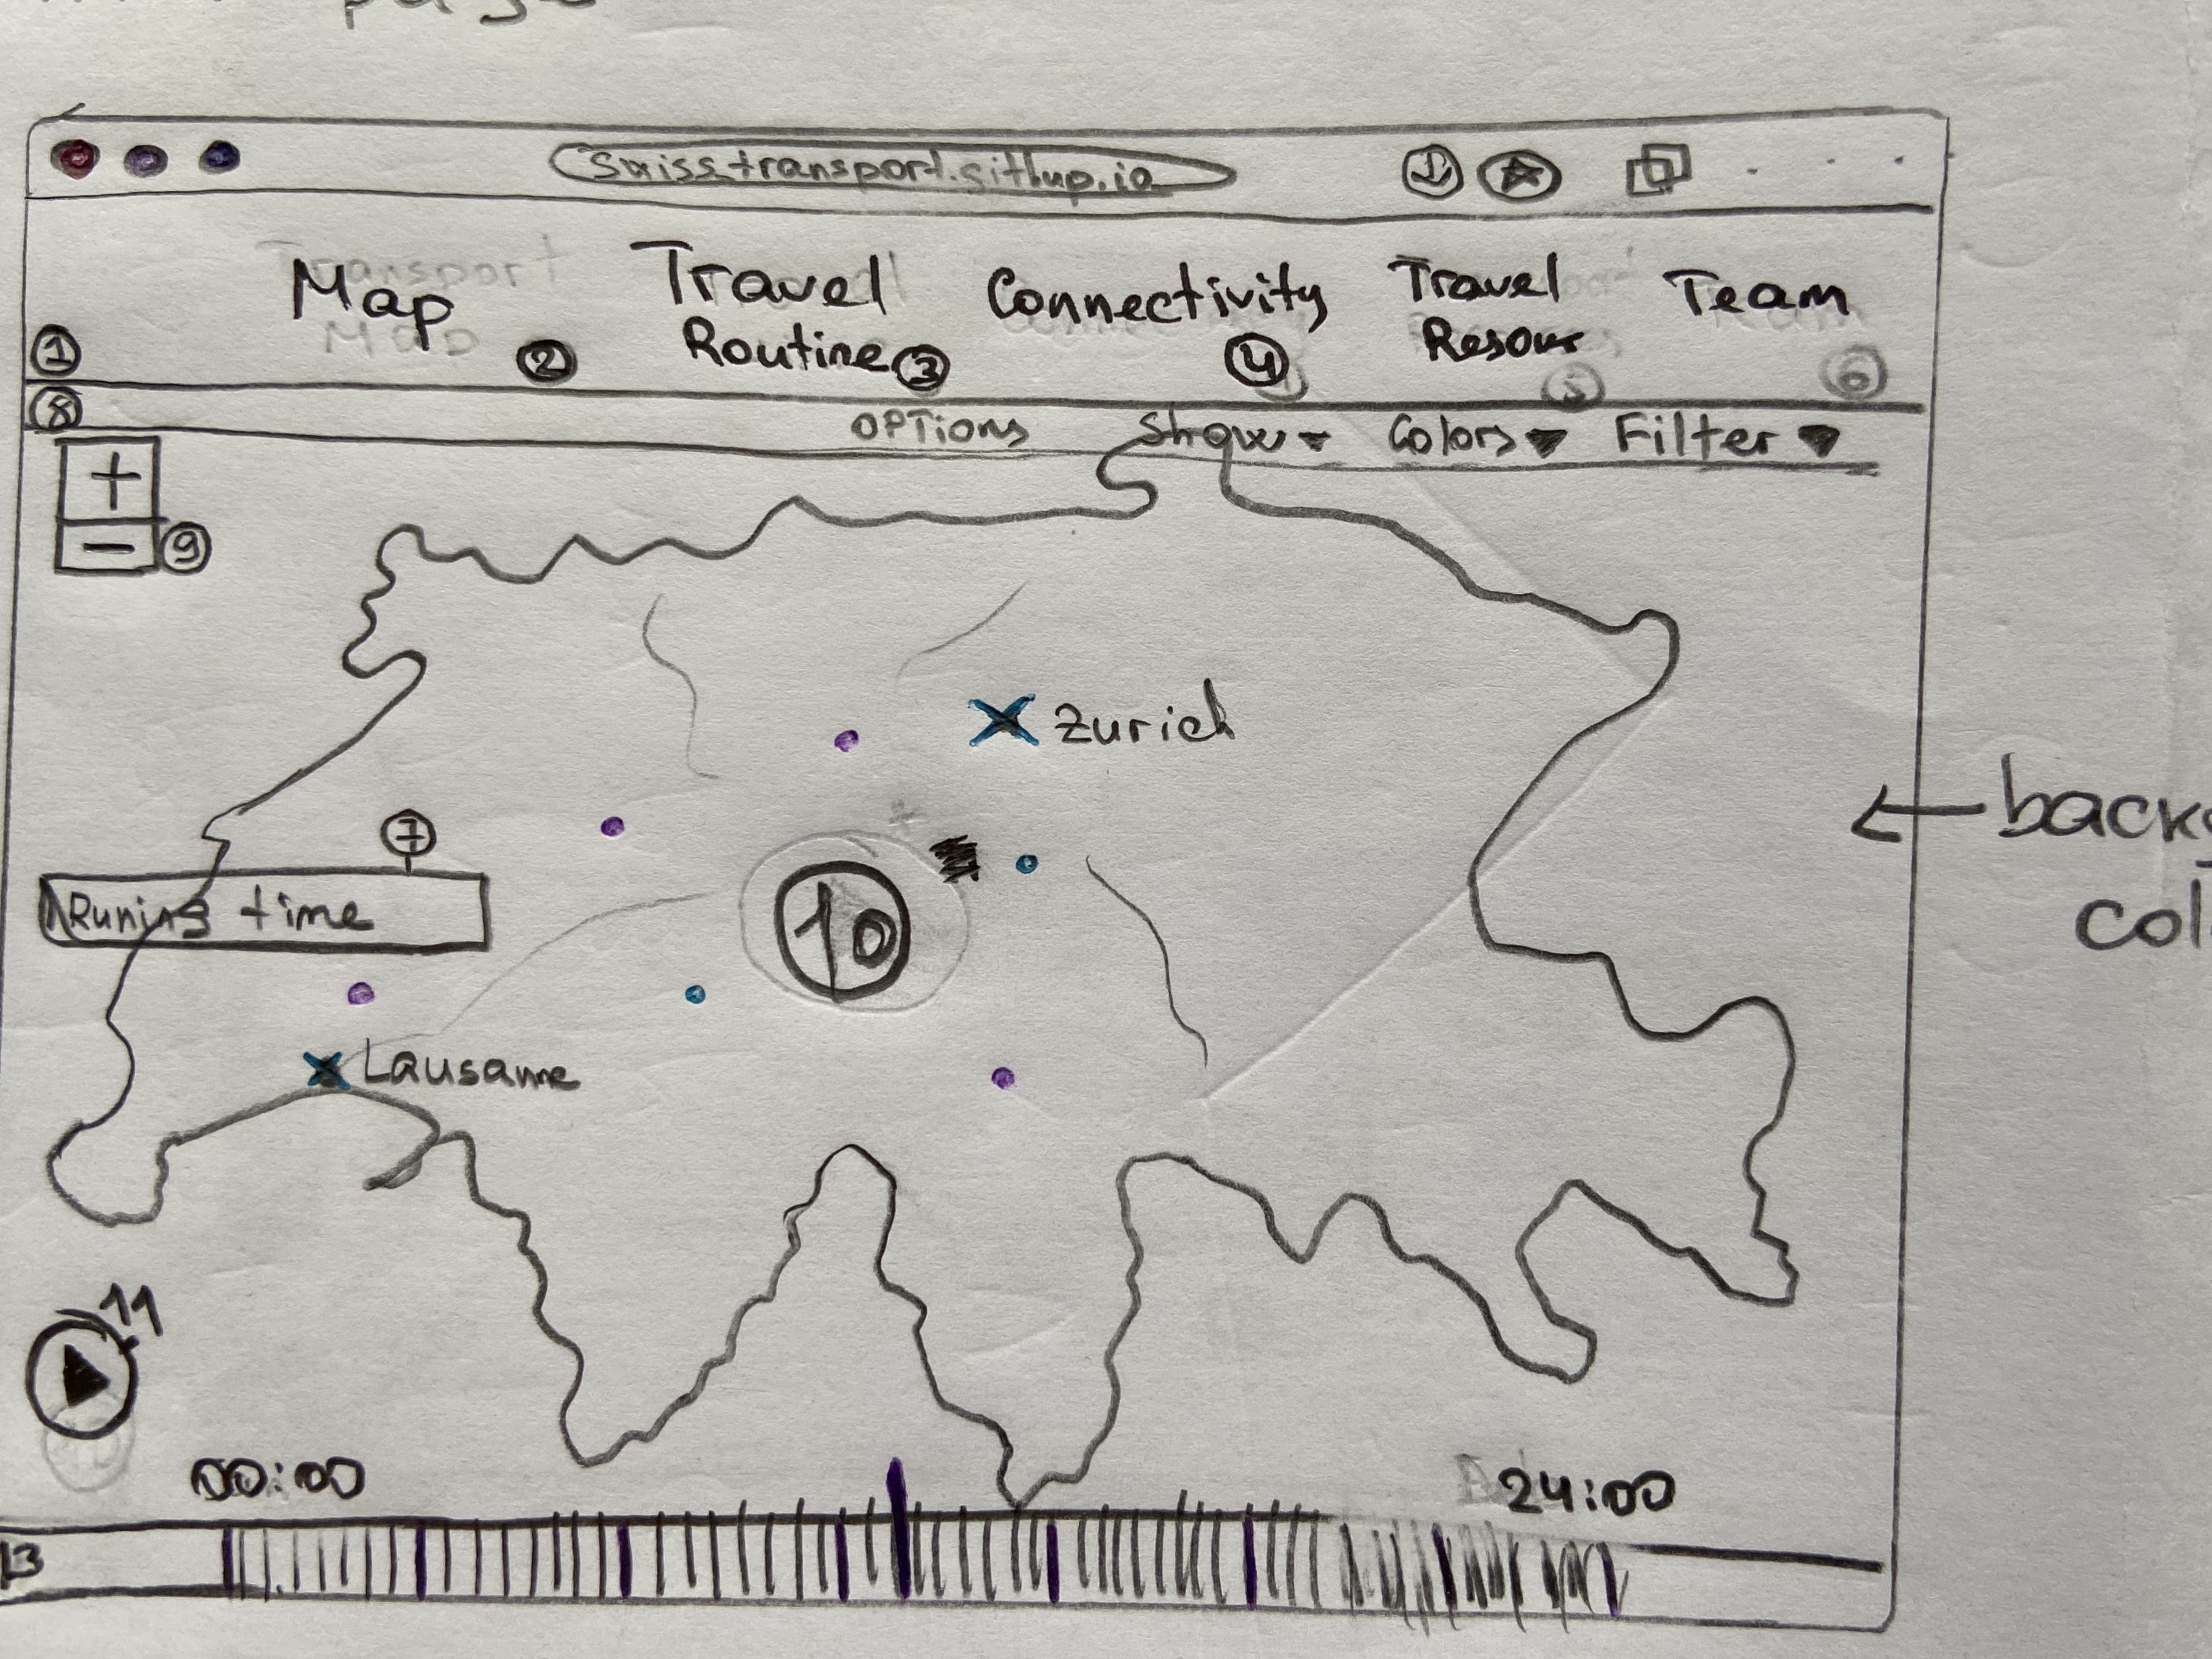 swisstransport.githup.io
Map
Travel
Routine
Connectivity
Travel
Resour
Team
1
2
3
4
5
6
8
OPTions
Show
Colors
Filter
+
-
9
Zurich
7
Runing time
10
Lausanne
col
11
00:00
24:00
13